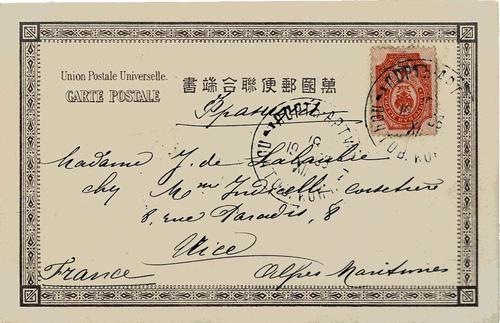 Union Postale Universelle.
CARTE POSTALE
書端合聯便郵國萬
Франція
ПОРТЪ-АРТУРЪ
Madame J. de
chez Mme couturière
8, rue Paradis, 8
Nice
France
Alpes Maritimes